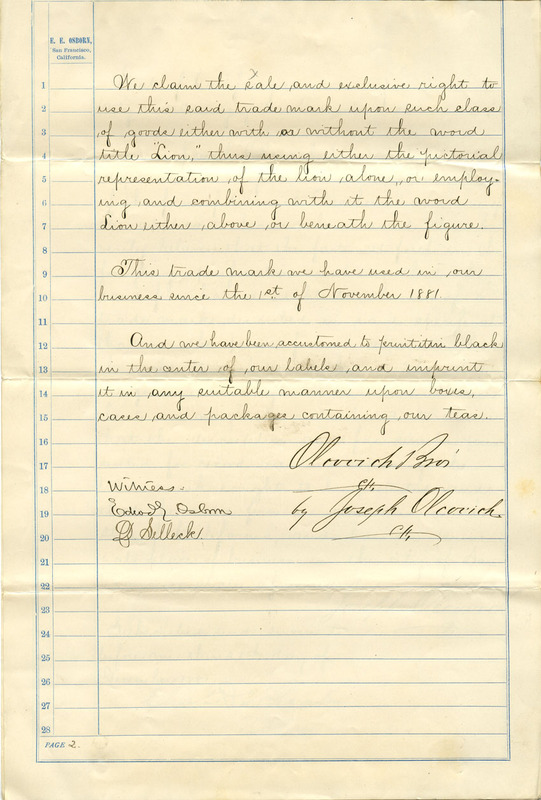 E. E. OSBORN,
San Francisco,
California.
1 We claim the sale and exclusive right to
2 use this said trade mark upon such class
3 of goods either with or without the word
4 title "Lion," thus using either the pictorial
5 representation of the lion alone, or employ-
6 ing and combining with it the word
7 Lion either above or beneath the figure.
8
9 This trade mark we have used in our
10 business since the 1st of November 1881.
11
12 And we have been accustomed to print it in black
13 in the center of our labels and imprint
14 it in any suitable manner upon boxes,
15 cases and packages containing our teas.
16
17 Olcovich Bros
18 Witness.
19 Edwd E. Osborn by Joseph Olcovich
20 D Selleck
21
22
19
20
25
26
27
28
PAGE 2.